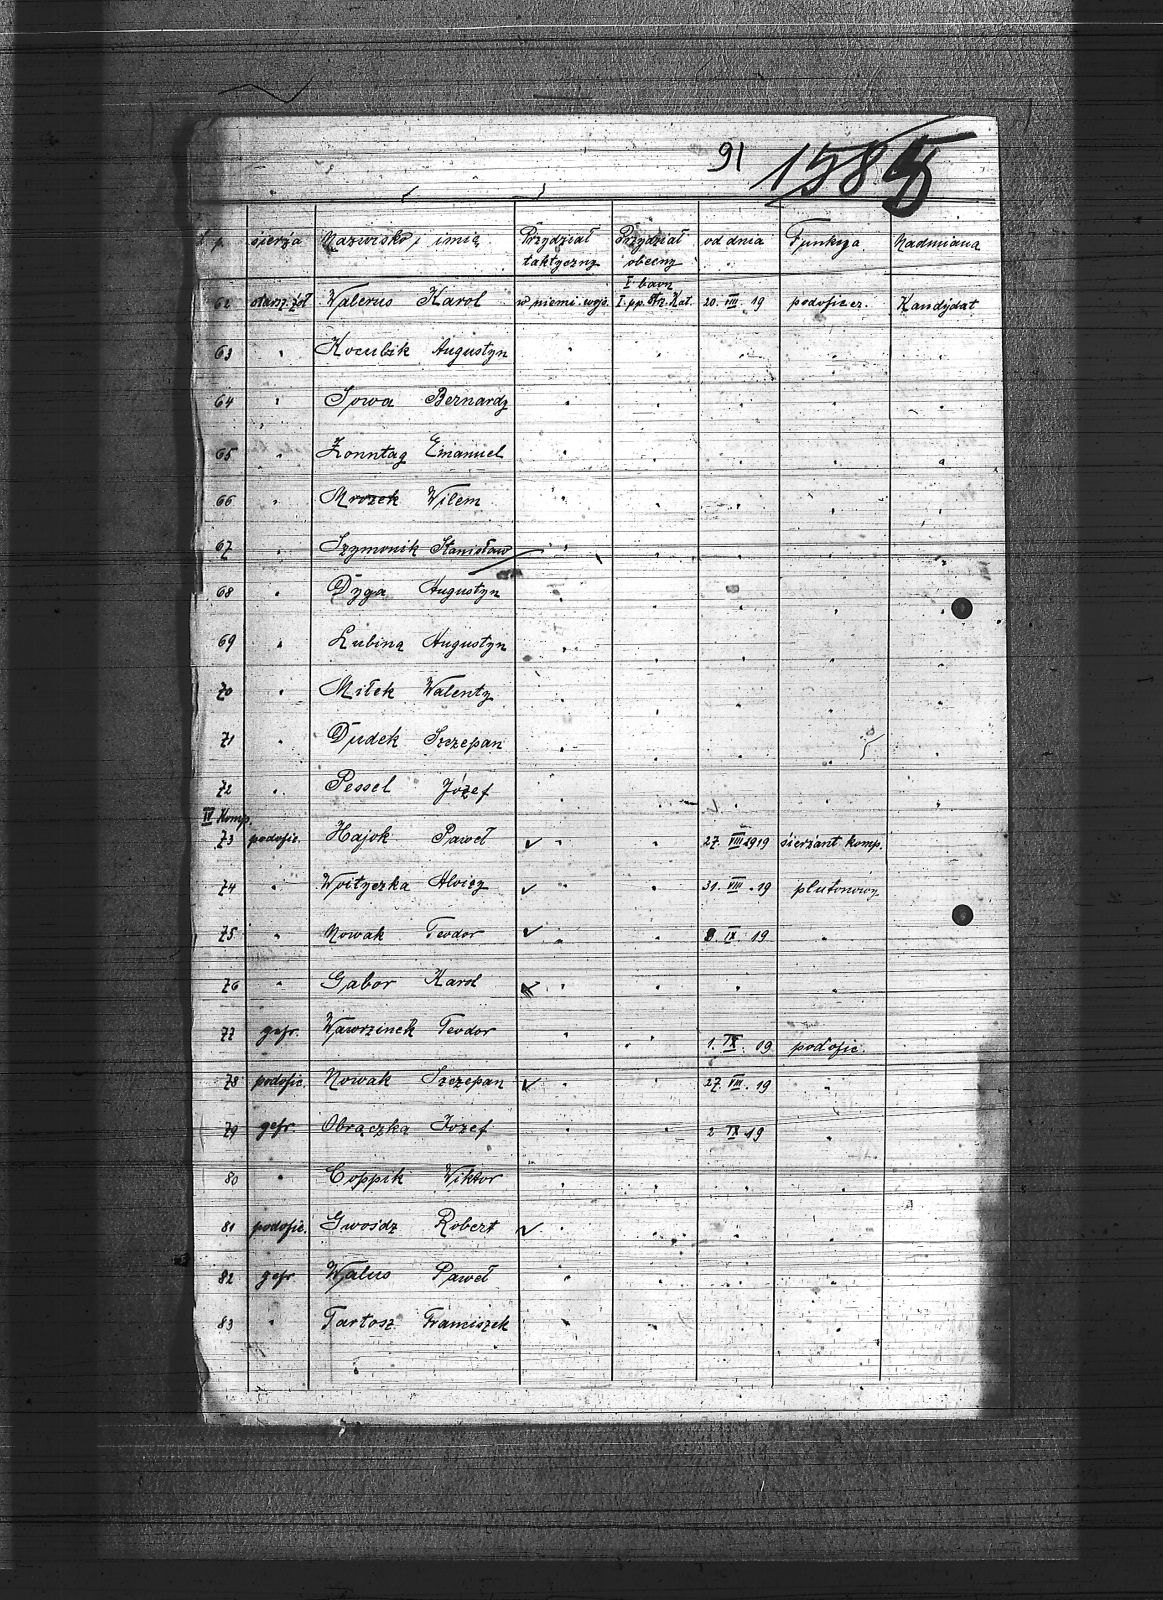 91
l. p. śierża Nazwisko i imię Przydział taktyczny Przydział obecny od dnia Funkcya Nadmiana
62 starsz. żoł. Walerus Karol w niemi. wojs. I baon I. pp. Strz. Kat. 20. VIII 19 podoficer. Kandydat
63 " Kocubik Augustyn " " " " "
64 " Sowa Bernardz " " " " "
65 " Zonntag Emanuel " " " " "
66 " Mrozek Wilem " " " " "
67 " Szymonik Stanisław " " " " "
68 " Dyga Augustyn " " " " "
69 " Lubina Augustyn " " " " "
70 " Miłek Walenty " " " " "
71 " Dudek Szczepan " " "
72 " Pessel Józef " " " " "
IV Komp.
73 podofic. Hajok Paweł " " 27. VIII 1919 sierżant komp.
74 " Woityczka Aloizy " " 31. VIII. 19 plutonowy
75 " Nowak Teodor " " 8. IX. 19 "
76 " Gabor Karol " " " "
77 gefr. Wawrzinek Teodor " " 1. IX. 19 podofic.
78 podofic. Nowak Szczepan " " 27. VIII. 19 "
79 gefr. Obrączka Jozef " " 2 IX 19 "
80 " Coppik Wiktor " " " "
81 podofic. Gwośdz Robert " " " "
82 gefr. Walus Paweł " " " "
83 " Tartosz Framiszek " " " "